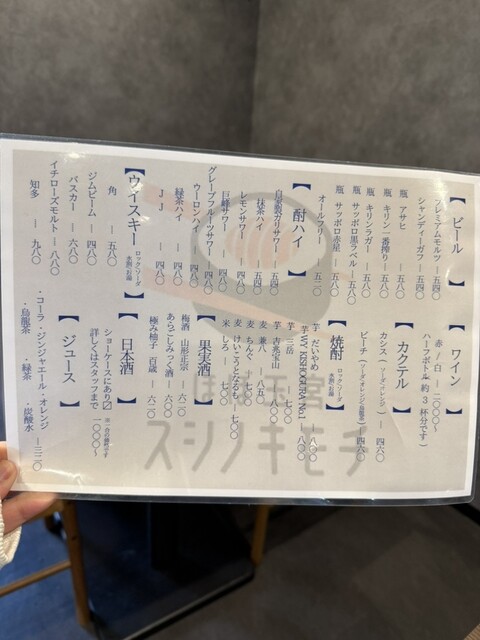 【ビール】
プレミアムモルツ ― 五四〇
シャンディーガフ ― 五四〇
瓶 アサヒ ― 五八〇
瓶 キリン一番搾り ― 五八〇
瓶 キリンラガー ― 五八〇
瓶 サッポロ黒ラベル ― 五八〇
瓶 サッポロ赤星 ― 五八〇
オールフリー ― 五二〇
【酎ハイ】
自家製ガリサワー ― 五四〇
抹茶ハイ ― 五四〇
レモンサワー ― 四八〇
巨峰サワー ― 四八〇
グレープフルーツサワー ― 四八〇
ウーロンハイ ― 四八〇
緑茶ハイ ― 四八〇
JJ ― 四八〇
【ウイスキー ロック・ソーダ 水割・お湯】
角 ― 五八〇
ジムビーム ― 四八〇
バスカー ― 六八〇
イチローズモルト ― 八八〇
知多 ― 九八〇
【ワイン】
赤/白 ― 二〇〇〇〜
ハーフボトル(約3杯分です)
【カクテル】
カシス(ソーダ・オレンジ) ― 四六〇
ピーチ(ソーダ・オレンジ・烏龍茶) ― 四六〇
【焼酎 ロック・ソーダ 水割・お湯】
芋 だいやめ ― 八〇〇
芋 三岳 ― 七〇〇
芋 吉兆宝山
麦 兼八 ― 八五〇
麦 ちんぐ ― 七〇〇
米 しろ ― 七〇〇
【果実酒】
梅酒 山形正宗
あらごしみっく酒 ― 六〇〇
極み柚子 百歳 ― 六二〇
【日本酒】
ショーケースにあり〼
詳しくはスタッフまで 一〇〇〇〜
【ジュース】
・コーラ・ジンジャエール・オレンジ
・烏龍茶 ・緑茶 ・炭酸水 ― 三二〇
スシノキモチ